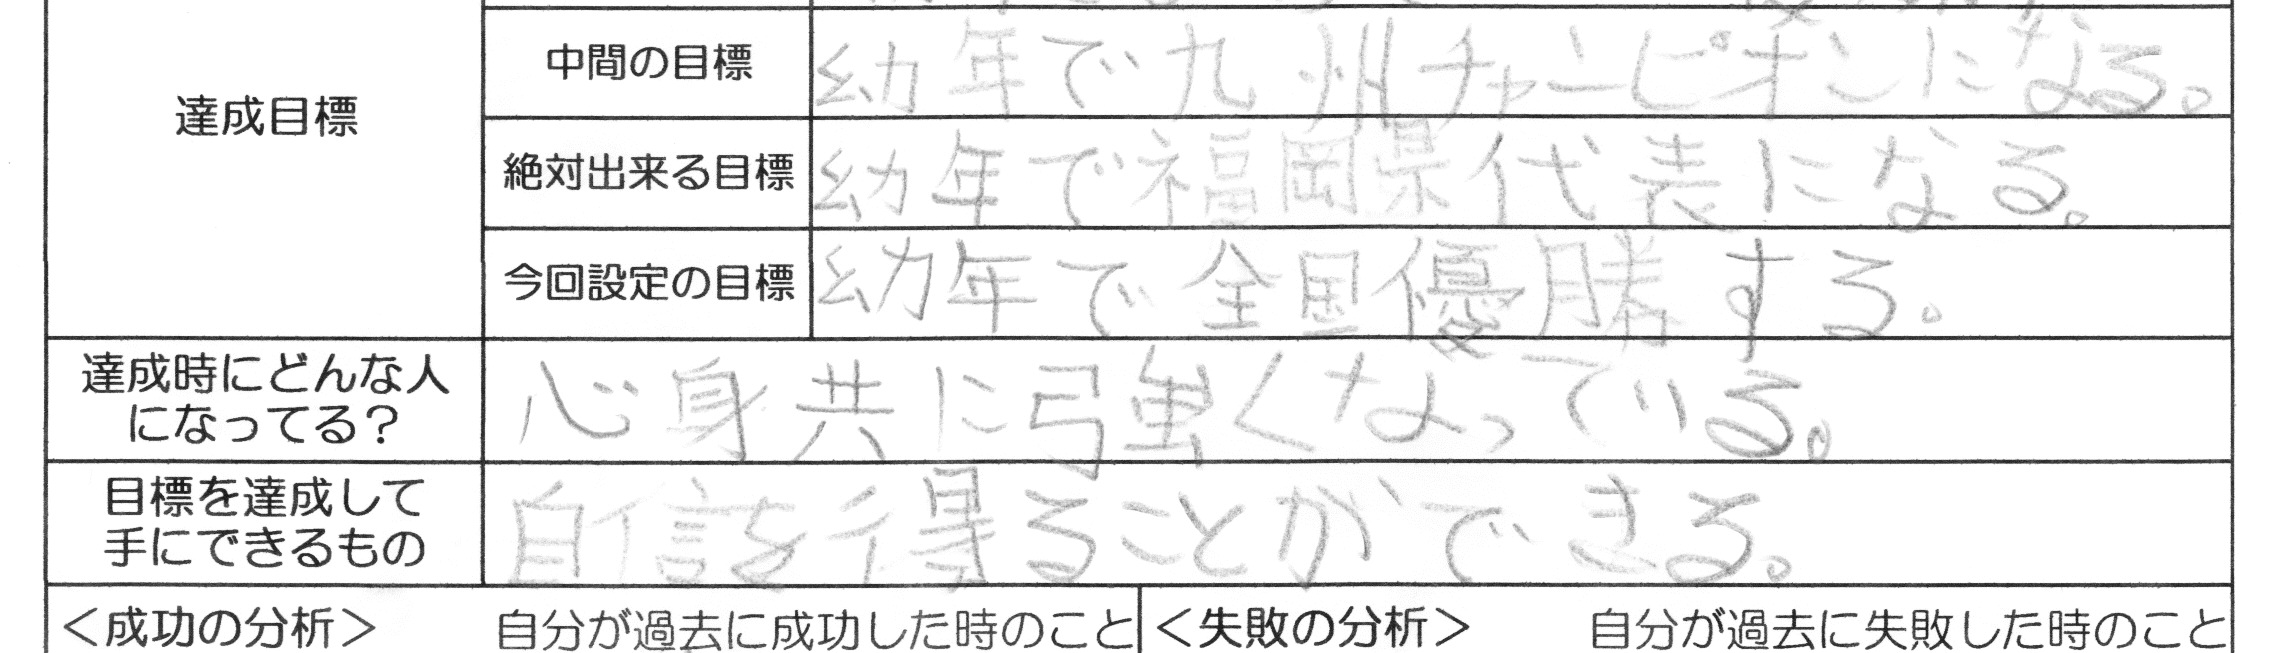 達成目標
中間の目標
幼年で九州チャンピオンになる。
絶対出来る目標
幼年で福岡県代表になる。
今回設定の目標
幼年で全国優勝する。
達成時にどんな人
になってる?
心身共に強くなっている。
目標を達成して
手にできるもの
自信を得ることができる。
<成功の分析> 自分が過去に成功した時のこと
<失敗の分析> 自分が過去に失敗した時のこと